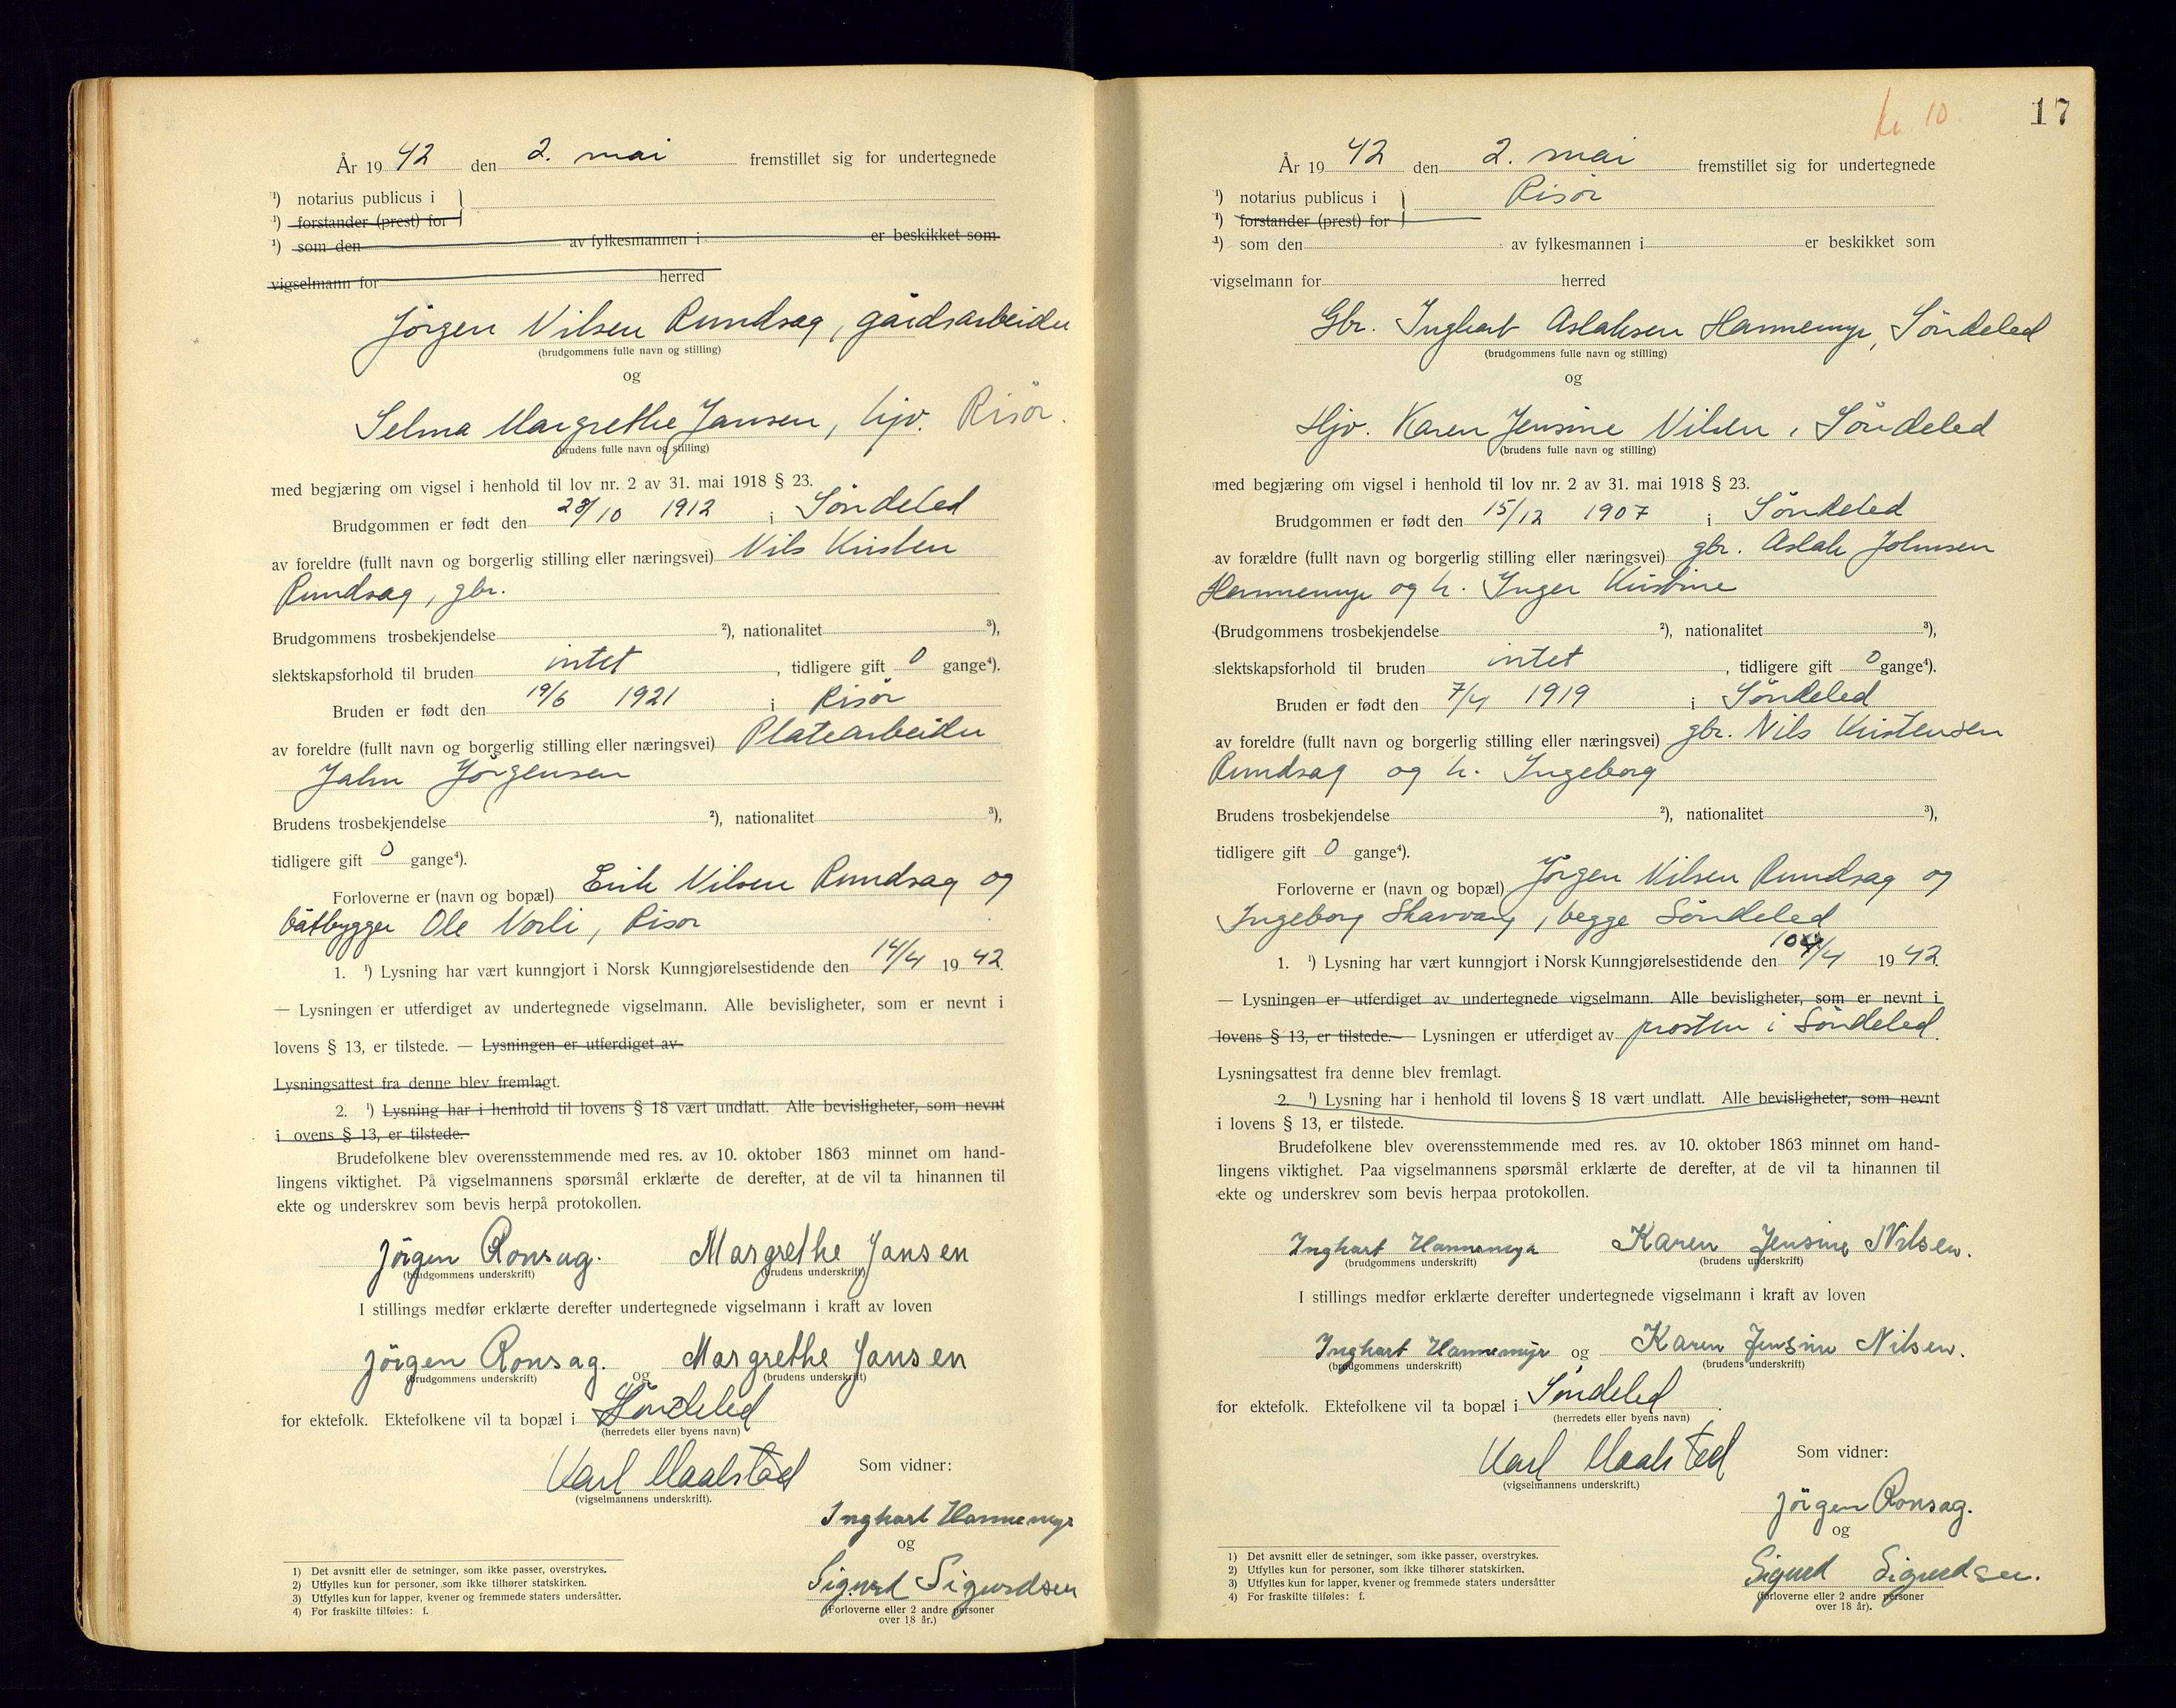 År 1942 den 2. mai fremstillet sig for undertegnede
¹) notarius publicus i
¹) forstander (prest) for
¹) som den av fylkesmannen i er beskikket som
vigselmann for herred
Jörgen Nilsen Rundsag, gårdsarbeider
(brudgommens fulle navn og stilling)
og
Selma Margrethe Jansen, hjv. Risör.
(brudens fulle navn og stilling)
med begjæring om vigsel i henhold til lov nr. 2 av 31. mai 1918 § 23.
Brudgommen er født den 28/10 1912 i Söndeled
av foreldre (fullt navn og borgerlig stilling eller næringsvei) Nils Kristen
Rundsag, gbr.
Brudgommens trosbekjendelse ²), nationalitet ³),
slektskapsforhold til bruden intet, tidligere gift 0 gange⁴).
Bruden er født den 19/6 1921 i Risör
av foreldre (fullt navn og borgerlig stilling eller næringsvei) Platearbeider
Jahn Jörgensen
Brudens trosbekjendelse ²), nationalitet ³),
tidligere gift 0 gange⁴).
Forloverne er (navn og bopæl) Erik Nilsen Rundsag og
båtbygger Ole Vorli, Risör
1. ¹) Lysning har vært kunngjort i Norsk Kunngjørelsestidende den 14/4 1942.
— Lysningen er utferdiget av undertegnede vigselmann. Alle bevisligheter, som er nevnt i
lovens § 13, er tilstede. — Lysningen er utferdiget av
Lysningsattest fra denne blev fremlagt.
2. ¹) Lysning har i henhold til lovens § 18 vært undlatt. Alle bevisligheter, som nevnt
i ovens § 13, er tilstede.
Brudefolkene blev overensstemmende med res. av 10. oktober 1863 minnet om hand-
lingens viktighet. På vigselmannens spørsmål erklærte de derefter, at de vil ta hinannen til
ekte og underskrev som bevis herpå protokollen.
Jörgen Ronsag. Margrethe Jansen
(brudgommens underskrift) (brudens underskrift)
I stillings medfør erklærte derefter undertegnede vigselmann i kraft av loven
Jörgen Ronsag. og Margrethe Jansen
(brudgommens underskrift) (brudens underskrift)
for ektefolk. Ektefolkene vil ta bopæl i Söndeled
(herredets eller byens navn)
Karl Maalstad Som vidner:
(vigselmannens underskrift).
Inghart Hannemyr
og
Sigurd Sigurdsen
(Forloverne eller 2 andre personer
over 18 år.)
1) Det avsnitt eller de setninger, som ikke passer, overstrykes.
2) Utfylles kun for personer, som ikke tilhører statskirken.
3) Utfylles kun for lapper, kvener og fremmede staters undersåtter.
4) For fraskilte tilføies: f.
kr 10
17
År 1942 den 2. mai fremstillet sig for undertegnede
¹) notarius publicus i Risör
¹) forstander (prest) for
¹) som den av fylkesmannen i er beskikket som
vigselmann for herred
Gbr. Inghart Aslaksen Hannemyr, Söndeled
(brudgommens fulle navn og stilling)
og
Hjv. Karen Jensine Nilsen, Söndeled
(brudens fulle navn og stilling)
med begjæring om vigsel i henhold til lov nr. 2 av 31. mai 1918 § 23.
Brudgommen er født den 15/12 1907 i Söndeled
av forældre (fullt navn og borgerlig stilling eller næringsvei) gbr. Aslak Johnsen
Hannemyr og h. Inger Kristine
(Brudgommens trosbekjendelse ²), nationalitet ³),
slektskapsforhold til bruden intet, tidligere gift 0 gange⁴).
Bruden er født den 7/4 1919 i Söndeled
av foreldre (fullt navn og borgerlig stilling eller næringsvei) gbr. Nils Kristensen
Rundsag og h. Ingeborg
Brudens trosbekjendelse ²), nationalitet ³),
tidligere gift 0 gange⁴).
Forloverne er (navn og bopæl) Jörgen Nilsen Rundsag og
Ingeborg Skarvang, begge Söndeled
1. ¹) Lysning har vært kunngjort i Norsk Kunngjørelsestidende den /4 1942.
— Lysningen er utferdiget av undertegnede vigselmann. Alle bevisligheter, som er nevnt i
lovens § 13, er tilstede. — Lysningen er utferdiget av prosten i Söndeled.
Lysningsattest fra denne blev fremlagt.
2. ¹) Lysning har i henhold til lovens § 18 vært undlatt. Alle bevisligheter, som nevnt
i lovens § 13, er tilstede.
Brudefolkene blev overensstemmende med res. av 10. oktober 1863 minnet om hand-
lingens viktighet. Paa vigselmannens spørsmål erklærte de derefter, at de vil ta hinannen til
ekte og underskrev som bevis herpaa protokollen.
Inghart Hannemyr Karen Jensine Nilsen.
(brudgommens underskrift) (brudens underskrift)
I stillings medfør erklærte derefter undertegnede vigselmann i kraft av loven
Inghart Hannemyr og Karen Jensine Nilsen.
(brudgommens underskrift) (brudens underskrift)
for ektefolk. Ektefolkene vil ta bopæl i Söndeled.
(herredets eller byens navn)
Karl Maalstad Som vidner:
(vigselmannens underskrift.)
Jörgen Ronsag.
og
Sigurd Sigurdsen.
(forloverne eller 2 andre personer
over 18 år).
1) Det avsnitt eller de setninger, som ikke passer, overstrykes.
2) Utfylles kun for personer, som ikke tilhører statskirken.
3) Utfylles kun for lapper, kvener og fremmede staters undersåtter
4) For fraskilte tilføies: f.